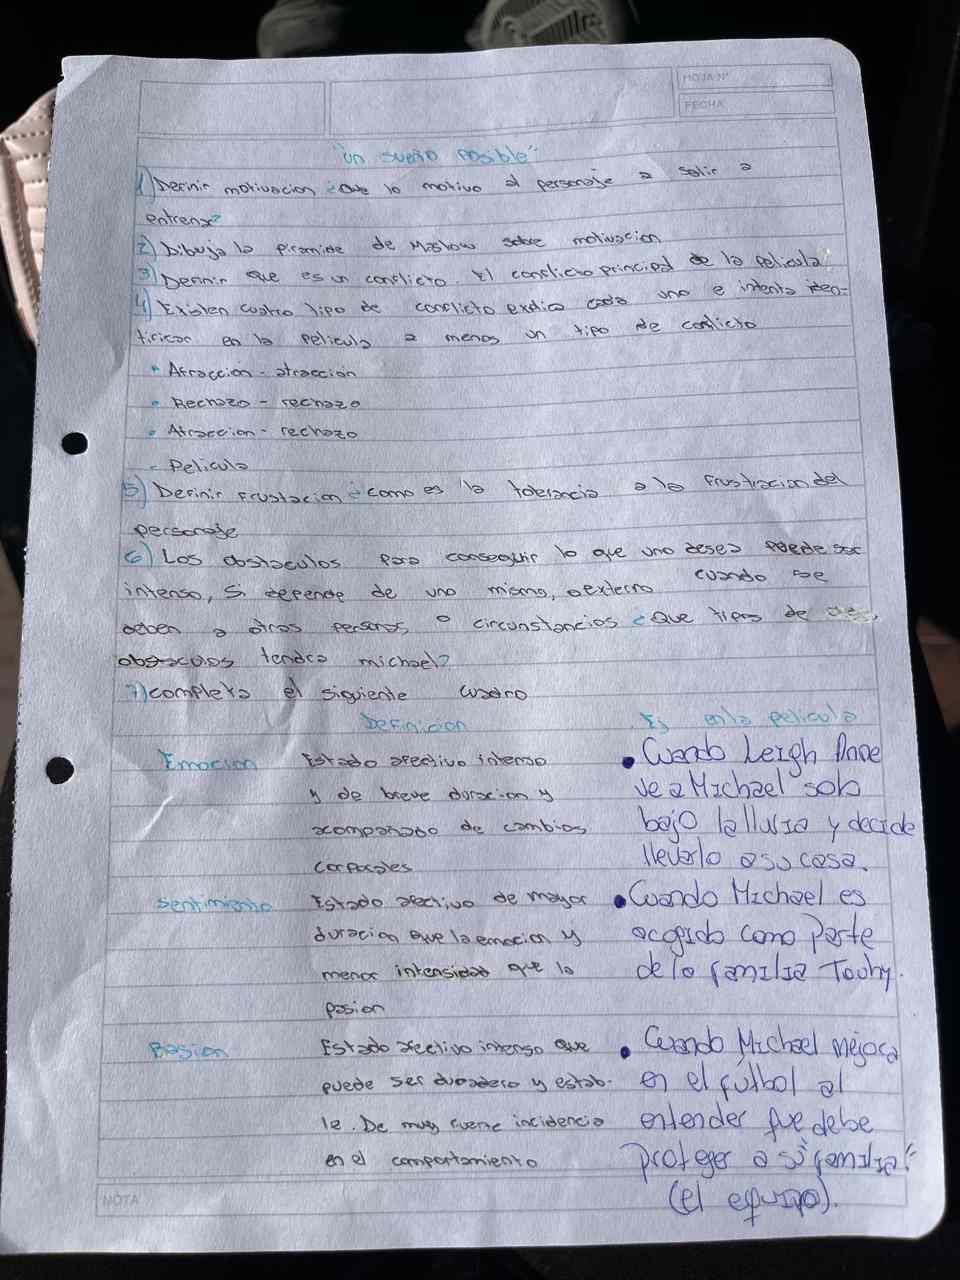 HOJA N°
FECHA
"Un sueño posible"
1) Definir motivacion ¿Que lo motivo al personaje a salir a
entrenar?
2) Dibuja la piramide de Maslow sobre motivacion
3) Definir que es un conflicto. El conflicto principal de la pelicula
4) Existen cuatro tipo de conflicto explica cada uno e intenta iden-
tificar en la pelicula a menos un tipo de conflicto
• Atraccion - atraccion
• Rechazo - rechazo
• Atraccion - rechazo
- Pelicula
5) Definir frustacion ¿como es la tolerancia a la frustracion del
personaje
6) Los obstaculos para conseguir lo que uno desea puede ser
intenso, si depende de uno mismo, o externo cuando se
deben a otras personas o circunstancias ¿Que tipos de
obstaculos tendra michael?
7) completa el siguiente cuadro
Definicion Ej en la pelicula
Emocion Estado afectivo intenso • Cuando Leigh Anne
y de breve duracion y ve a Michael solo
acompañado de cambios bajo la lluvia y decide
corporales llevarlo a su casa.
Sentimiento Estado afectivo de mayor • Cuando Michael es
duracion que la emocion y acogido como parte
menor intensidad que la de la familia Touhy.
pasion
Pasion Estado afectivo intenso que • Cuando Michael mejora
puede ser duradero y estab- en el futbol al
le. De muy fuerte incidencia entender que debe
en el comportamiento proteger a su "familia"
(el equipo).
NOTA